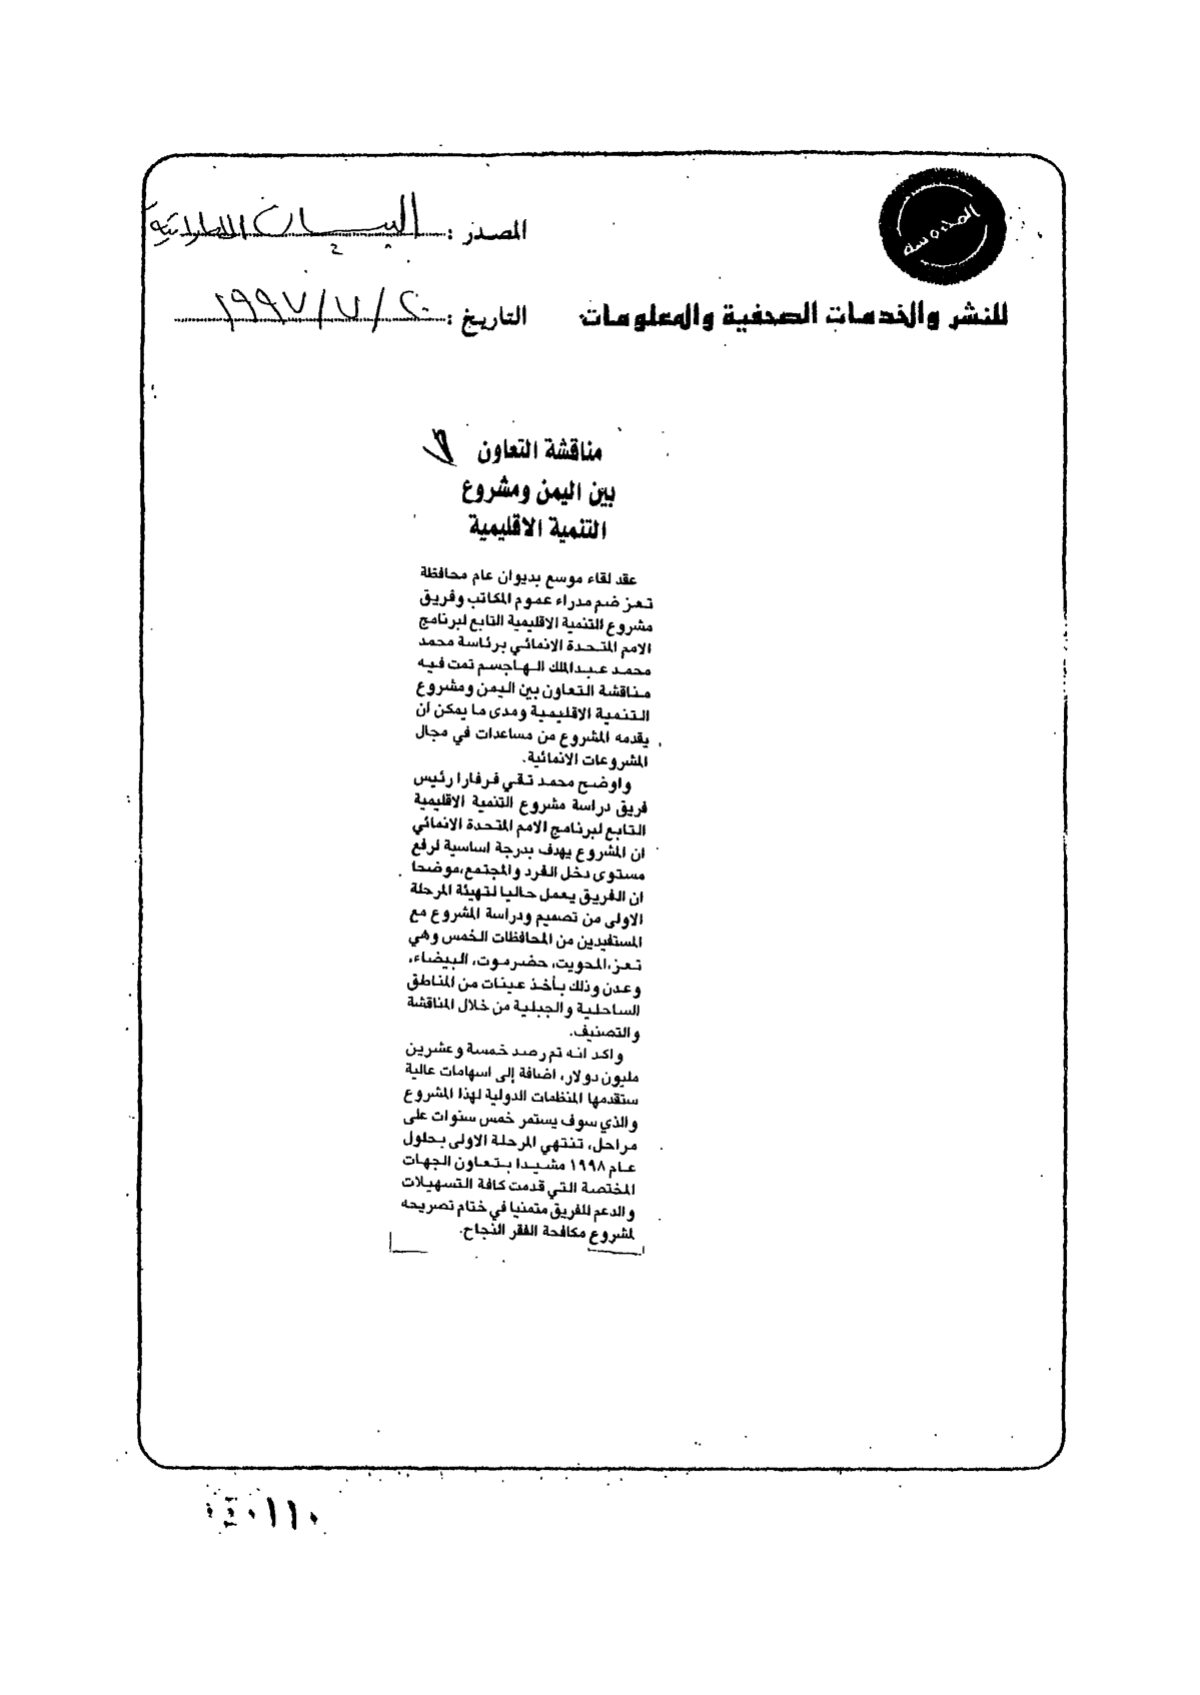 المحروسة
المصدر : البيان الاماراتية
للنشر والخدمات الصحفية والمعلومات
التاريخ : ٢٠ / ٧ / ١٩٩٧
مناقشة التعاون
بين اليمن ومشروع
التنمية الاقليمية
عقد لقاء موسع بديوان عام محافظة
تعز ضم مدراء عموم المكاتب وفريق
مشروع التنمية الاقليمية التابع لبرنامج
الامم المتحدة الانمائي برئاسة محمد
محمد عبدالملك الهاجسم تمت فيه
مناقشة التعاون بين اليمن ومشروع
التنمية الاقليمية ومدى ما يمكن ان
يقدمه المشروع من مساعدات في مجال
المشروعات الانمائية.
واوضح محمد تقي فرفارا رئيس
فريق دراسة مشروع التنمية الاقليمية
التابع لبرنامج الامم المتحدة الانمائي
ان المشروع يهدف بدرجة اساسية لرفع
مستوى دخل الفرد والمجتمع،موضحا
ان الفريق يعمل حاليا لتهيئة المرحلة
الاولى من تصميم ودراسة المشروع مع
المستفيدين من المحافظات الخمس وهي
تعز،المحويت، حضرموت، البيضاء،
وعدن وذلك بأخذ عينات من المناطق
الساحلية والجبلية من خلال المناقشة
والتصنيف.
واكد انه تم رصد خمسة وعشرين
مليون دولار، اضافة إلى اسهامات عالية
ستقدمها المنظمات الدولية لهذا المشروع
والذي سوف يستمر خمس سنوات على
مراحل، تنتهي المرحلة الاولى بحلول
عام ١٩٩٨ مشيدا بتعاون الجهات
المختصة التي قدمت كافة التسهيلات
والدعم للفريق متمنيا في ختام تصريحه
لمشروع مكافحة الفقر النجاح.